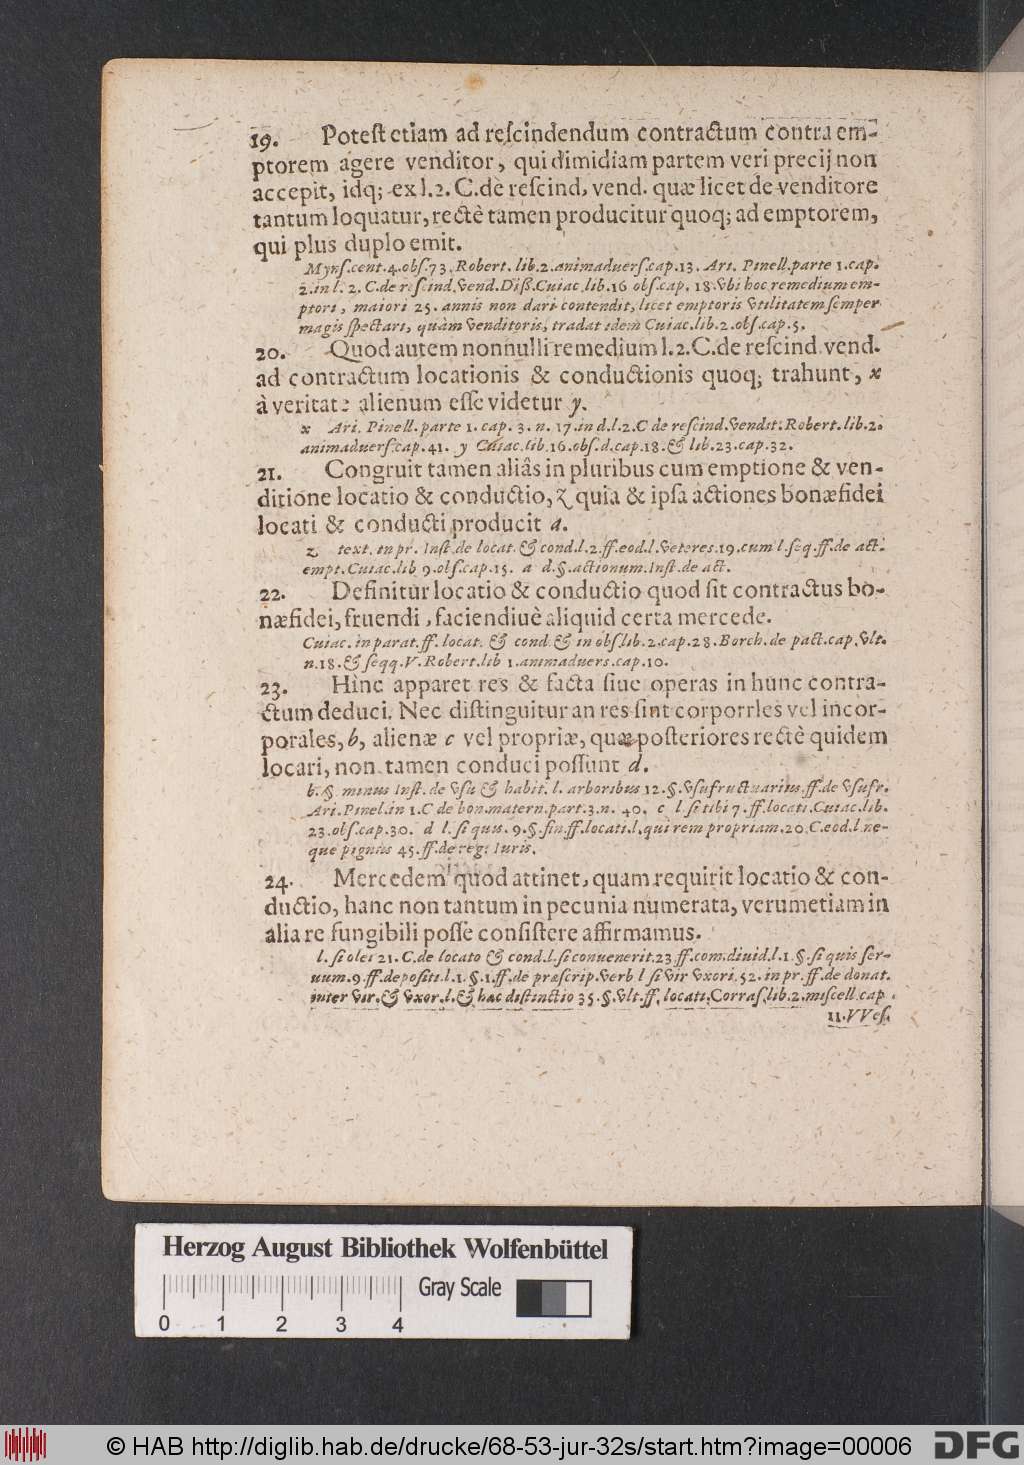 19. Potest etiam ad rescindendum contractum contra em-
ptorem agere venditor, qui dimidiam partem veri precij non
accepit, idq; ex l. 2. C. de rescind. vend. quæ licet de venditore
tantum loquatur, rectè tamen producitur quoq; ad emptorem,
qui plus duplo emit.
Myns. cent. 4. obs. 73. Robert. lib. 2. animaduers. cap. 13. Ari. Pinell. parte 1. cap.
2. in l. 2. C. de rescind. vend. Diß. Cuiac. lib. 16 obs. cap. 18. vbi hoc remedium em-
ptori, maiori 25. annis non dari contendit, licet emptoris vtilitatem semper
magis spectari, quàm venditoris, tradat idem Cuiac. lib. 2. obs. cap. 5.
20. Quod autem nonnulli remedium l. 2. C. de rescind. vend.
ad contractum locationis & conductionis quoq; trahunt, x
à veritate alienum esse videtur y.
x Ari. Pinell. parte 1. cap. 3. n. 17. in d. l. 2. C de rescind. vendit. Robert. lib. 2.
animaduers. cap. 41. y Cuiac. lib. 16. obs. d. cap. 18. & lib. 23. cap. 32.
21. Congruit tamen aliâs in pluribus cum emptione & ven-
ditione locatio & conductio, z quia & ipsa actiones bonæfidei
locati & conducti producit a.
z text. in pr. Inst. de locat. & cond. l. 2. ff. eod. l. veteres. 19. cum l. seq. ff. de act.
empt. Cuiac. lib 9. obs. cap. 15. a d. §. actionum. Inst. de act.
22. Definitur locatio & conductio quod sit contractus bo-
næfidei, fruendi, faciendiuè aliquid certa mercede.
Cuiac. in parat. ff. locat. & cond. & in obs. lib. 2. cap. 28. Borch. de pact. cap. vlt.
n. 18. & seqq. V. Robert. lib 1. animaduers. cap. 10.
23. Hinc apparet res & facta siue operas in hunc contra-
ctum deduci. Nec distinguitur an res sint corporrles vel incor-
porales, b, alienæ c vel propriæ, quæ posteriores rectè quidem
locari, non tamen conduci possunt d.
b. §. minus Inst. de vsu & habit. l. arboribus 12. §. vsufructuarius. ff. de vsufr.
Ari. Pinel. in 1. C de bon. matern. part. 3. n. 40. c l. si tibi 7. ff. locati. Cuiac. lib.
23. obs. cap. 30. d l. si quis. 9. §. fin. ff. locati. l. qui rem propriam. 20. C. eod. l. ne-
que pignus 45. ff. de reg. Iuris.
24. Mercedem quod attinet, quam requirit locatio & con-
ductio, hanc non tantum in pecunia numerata, verumetiam in
alia re fungibili posse consistere affirmamus.
l. si olei 21. C. de locato & cond. l. si conuenerit. 23 ff. com. diuid. l. 1. §. si quis ser-
uum. 9. ff. depositi. l. 1. §. 1. ff. de præscrip. verb l si vir vxori. 52. in pr. ff. de donat.
inter vir. & vxor. l. & hæc distinctio 35. §. vlt. ff. locati. Corras. lib. 2. miscell. cap.
11. VVes.
Herzog August Bibliothek Wolfenbüttel
Gray Scale
0 1 2 3 4
© HAB http://diglib.hab.de/drucke/68-53-jur-32s/start.htm?image=00006
DFG